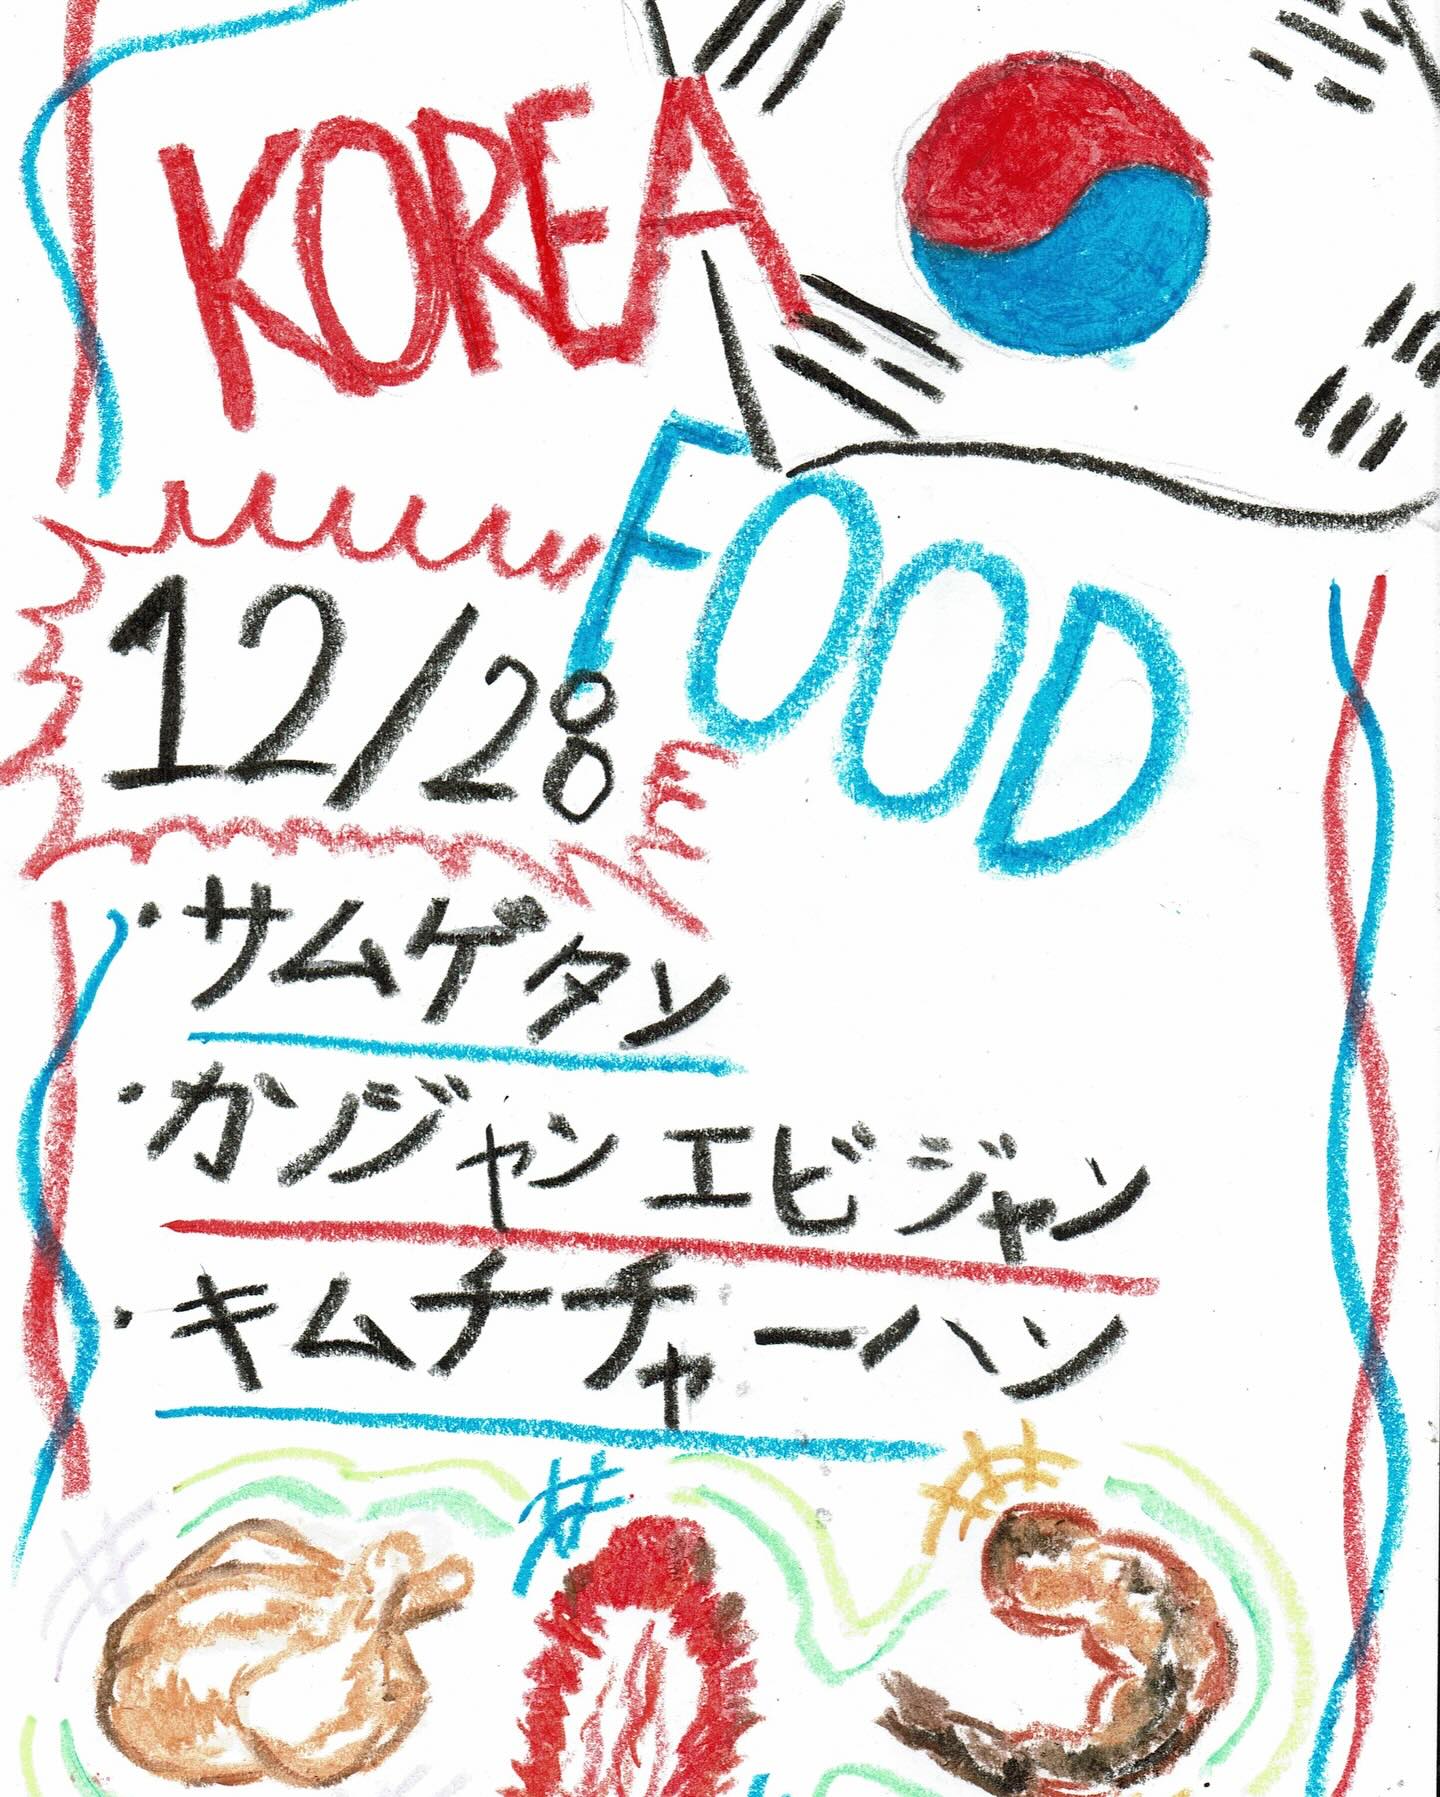 KOREA
FOOD
12/28
・サムゲタン
・カンジャンエビジャン
・キムチチャーハン